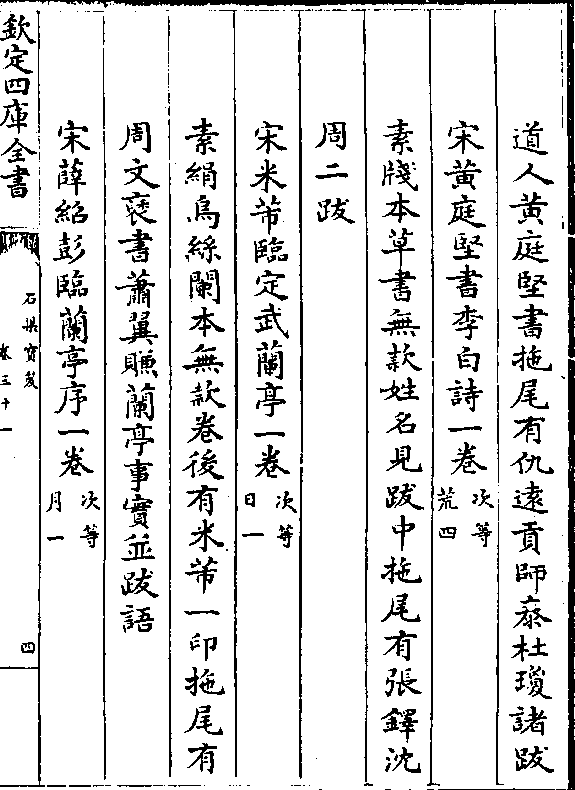 道人黄庭堅書拖尾有仇遠貢師㤗杜瓊諸跋
宋黄庭堅書李白詩一卷次等荒四
素牋本草書無款姓名見跋中拖尾有張鐸沈
周二跋
宋米芾臨定武蘭亭一卷次等日一
素絹烏絲闌本無款卷後有米芾一印拖尾有
周文襃書蕭翼賺蘭亭事實並跋語
宋薛紹彭臨蘭亭序一卷次等月一
欽定四庫全書
石渠寶笈
卷三十一
四